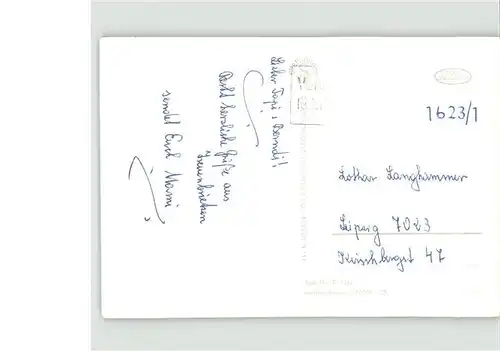 Lieber Papi + Berndt!
Recht herzliche Grüße aus
Treuenbrietzen
sendet Euch Mami
1623/1
Lothar Langhammer
Leipzig 7023
Kirschbergst 47